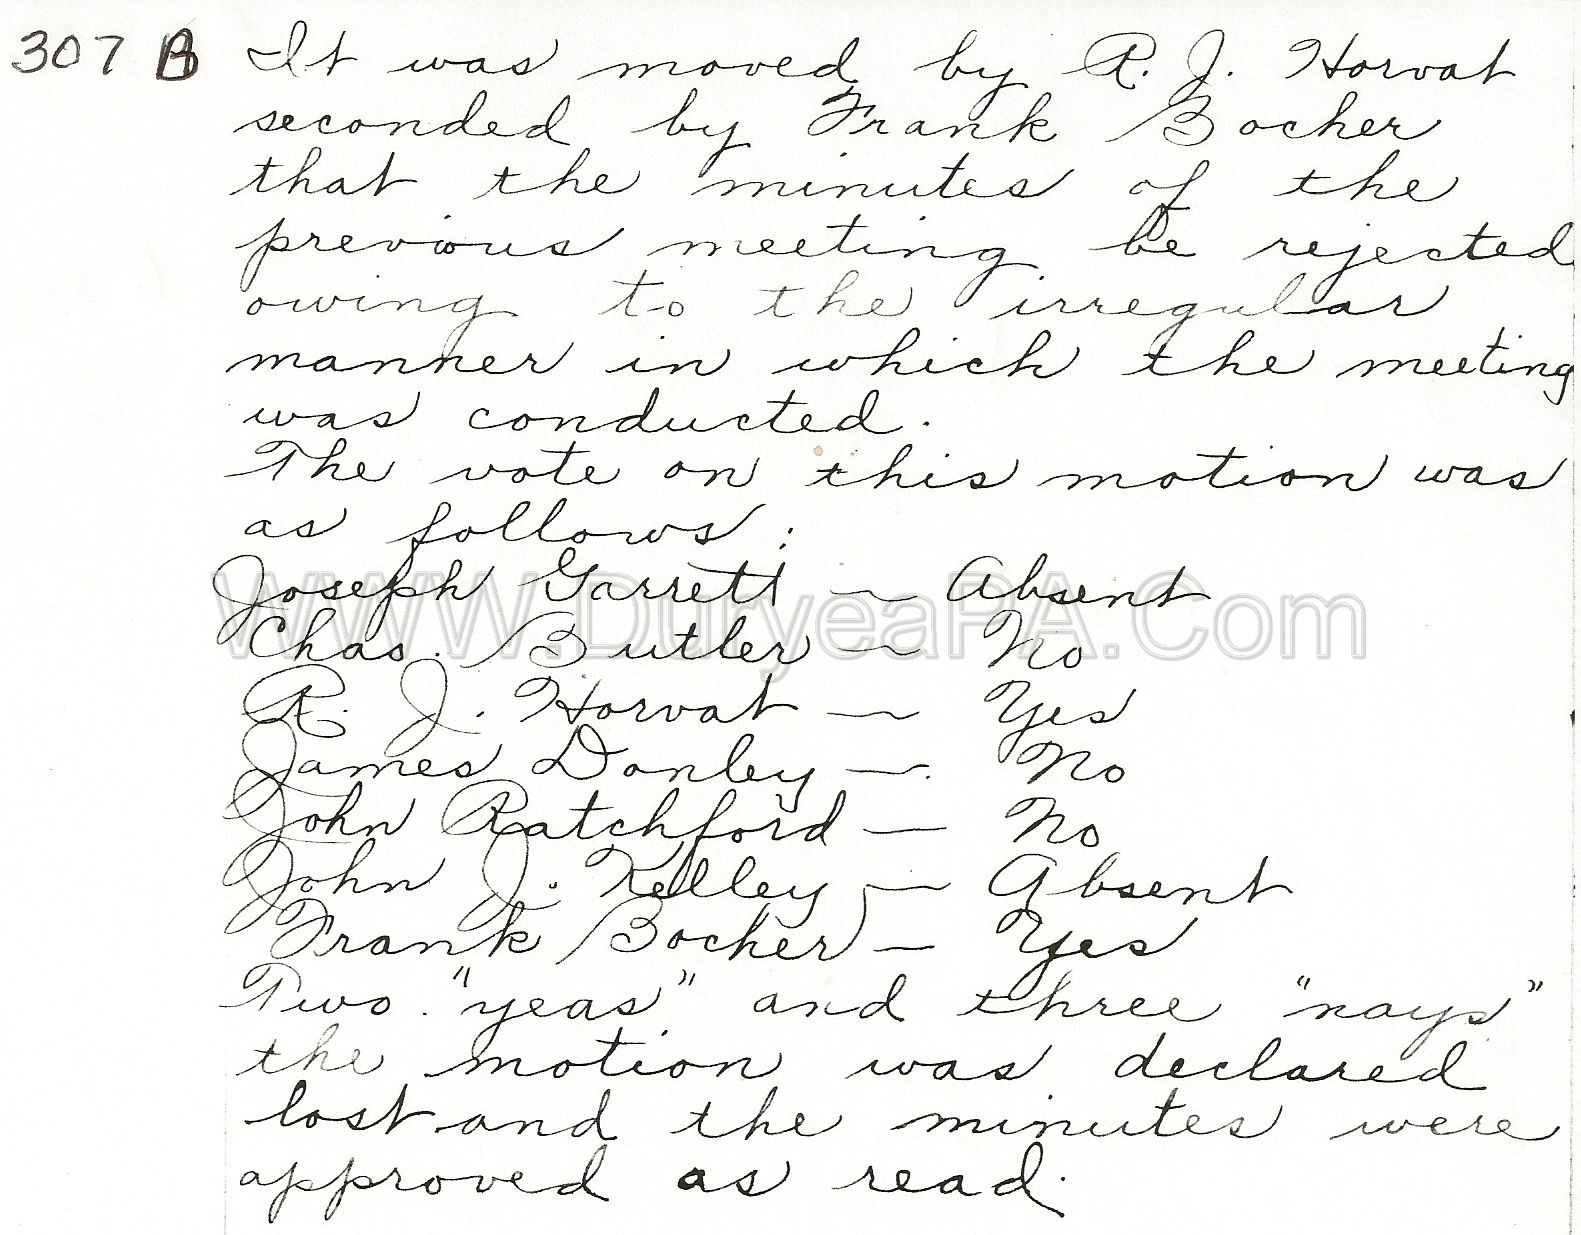 307 B It was moved by R. J. Horvat
seconded by Frank Bocher
that the minutes of the
previous meeting be rejected
owing to the irregular
manner in which the meeting
was conducted.
The vote on this motion was
as follows:
Joseph Garrett — Absent
WWW.DuryeaPA.Com
Chas. Butler — No
R. J. Horvat — Yes
James Donley — No
John Ratchford — No
John J. Kelley — Absent
Frank Bocher — Yes
Two "yeas" and three "nays"
the motion was declared
lost and the minutes were
approved as read.